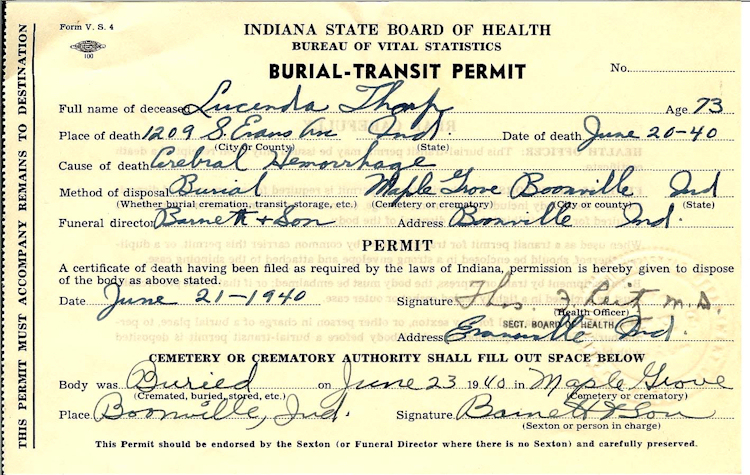 Form V. S. 4
100
INDIANA STATE BOARD OF HEALTH
BUREAU OF VITAL STATISTICS
BURIAL-TRANSIT PERMIT
No.
Full name of deceased Lucinda Tharp Age 73
Place of death 1209 S. Evans Av Ind. Date of death June 20-40
(City or County) (State)
Cause of death Cerebral Hemorrhage
Method of disposal Burial Maple Grove Boonville Ind
(Whether burial cremation, transit, storage, etc.) (Cemetery or crematory) (City or county) (State)
Funeral director Barnett & Son Address Boonville Ind.
PERMIT
A certificate of death having been filed as required by the laws of Indiana, permission is hereby given to dispose
of the body as above stated.
Date June 21-1940 Signature Thos. M.D.
(Health Officer)
SECT. BOARD OF HEALTH
Address Evansville Ind.
CEMETERY OR CREMATORY AUTHORITY SHALL FILL OUT SPACE BELOW
Body was Buried on June 23 1940 in Maple Grove
(Cremated, buried, stored, etc.) (Cemetery or crematory)
Place Boonville, Ind. Signature Barnett & Son
(Sexton or person in charge)
This Permit should be endorsed by the Sexton (or Funeral Director where there is no Sexton) and carefully preserved.
THIS PERMIT MUST ACCOMPANY REMAINS TO DESTINATION